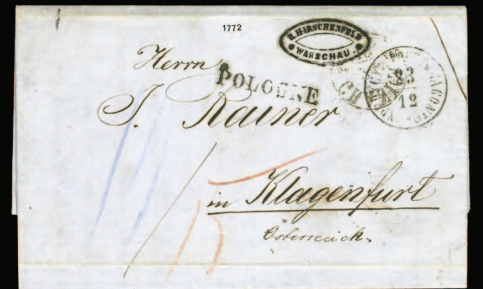 1772
S. HARSCHENFELD
WARSCHAU.
Herrn
POLOGNE
23
12
J. Rainer
15
in Klagenfurt
Österreich.